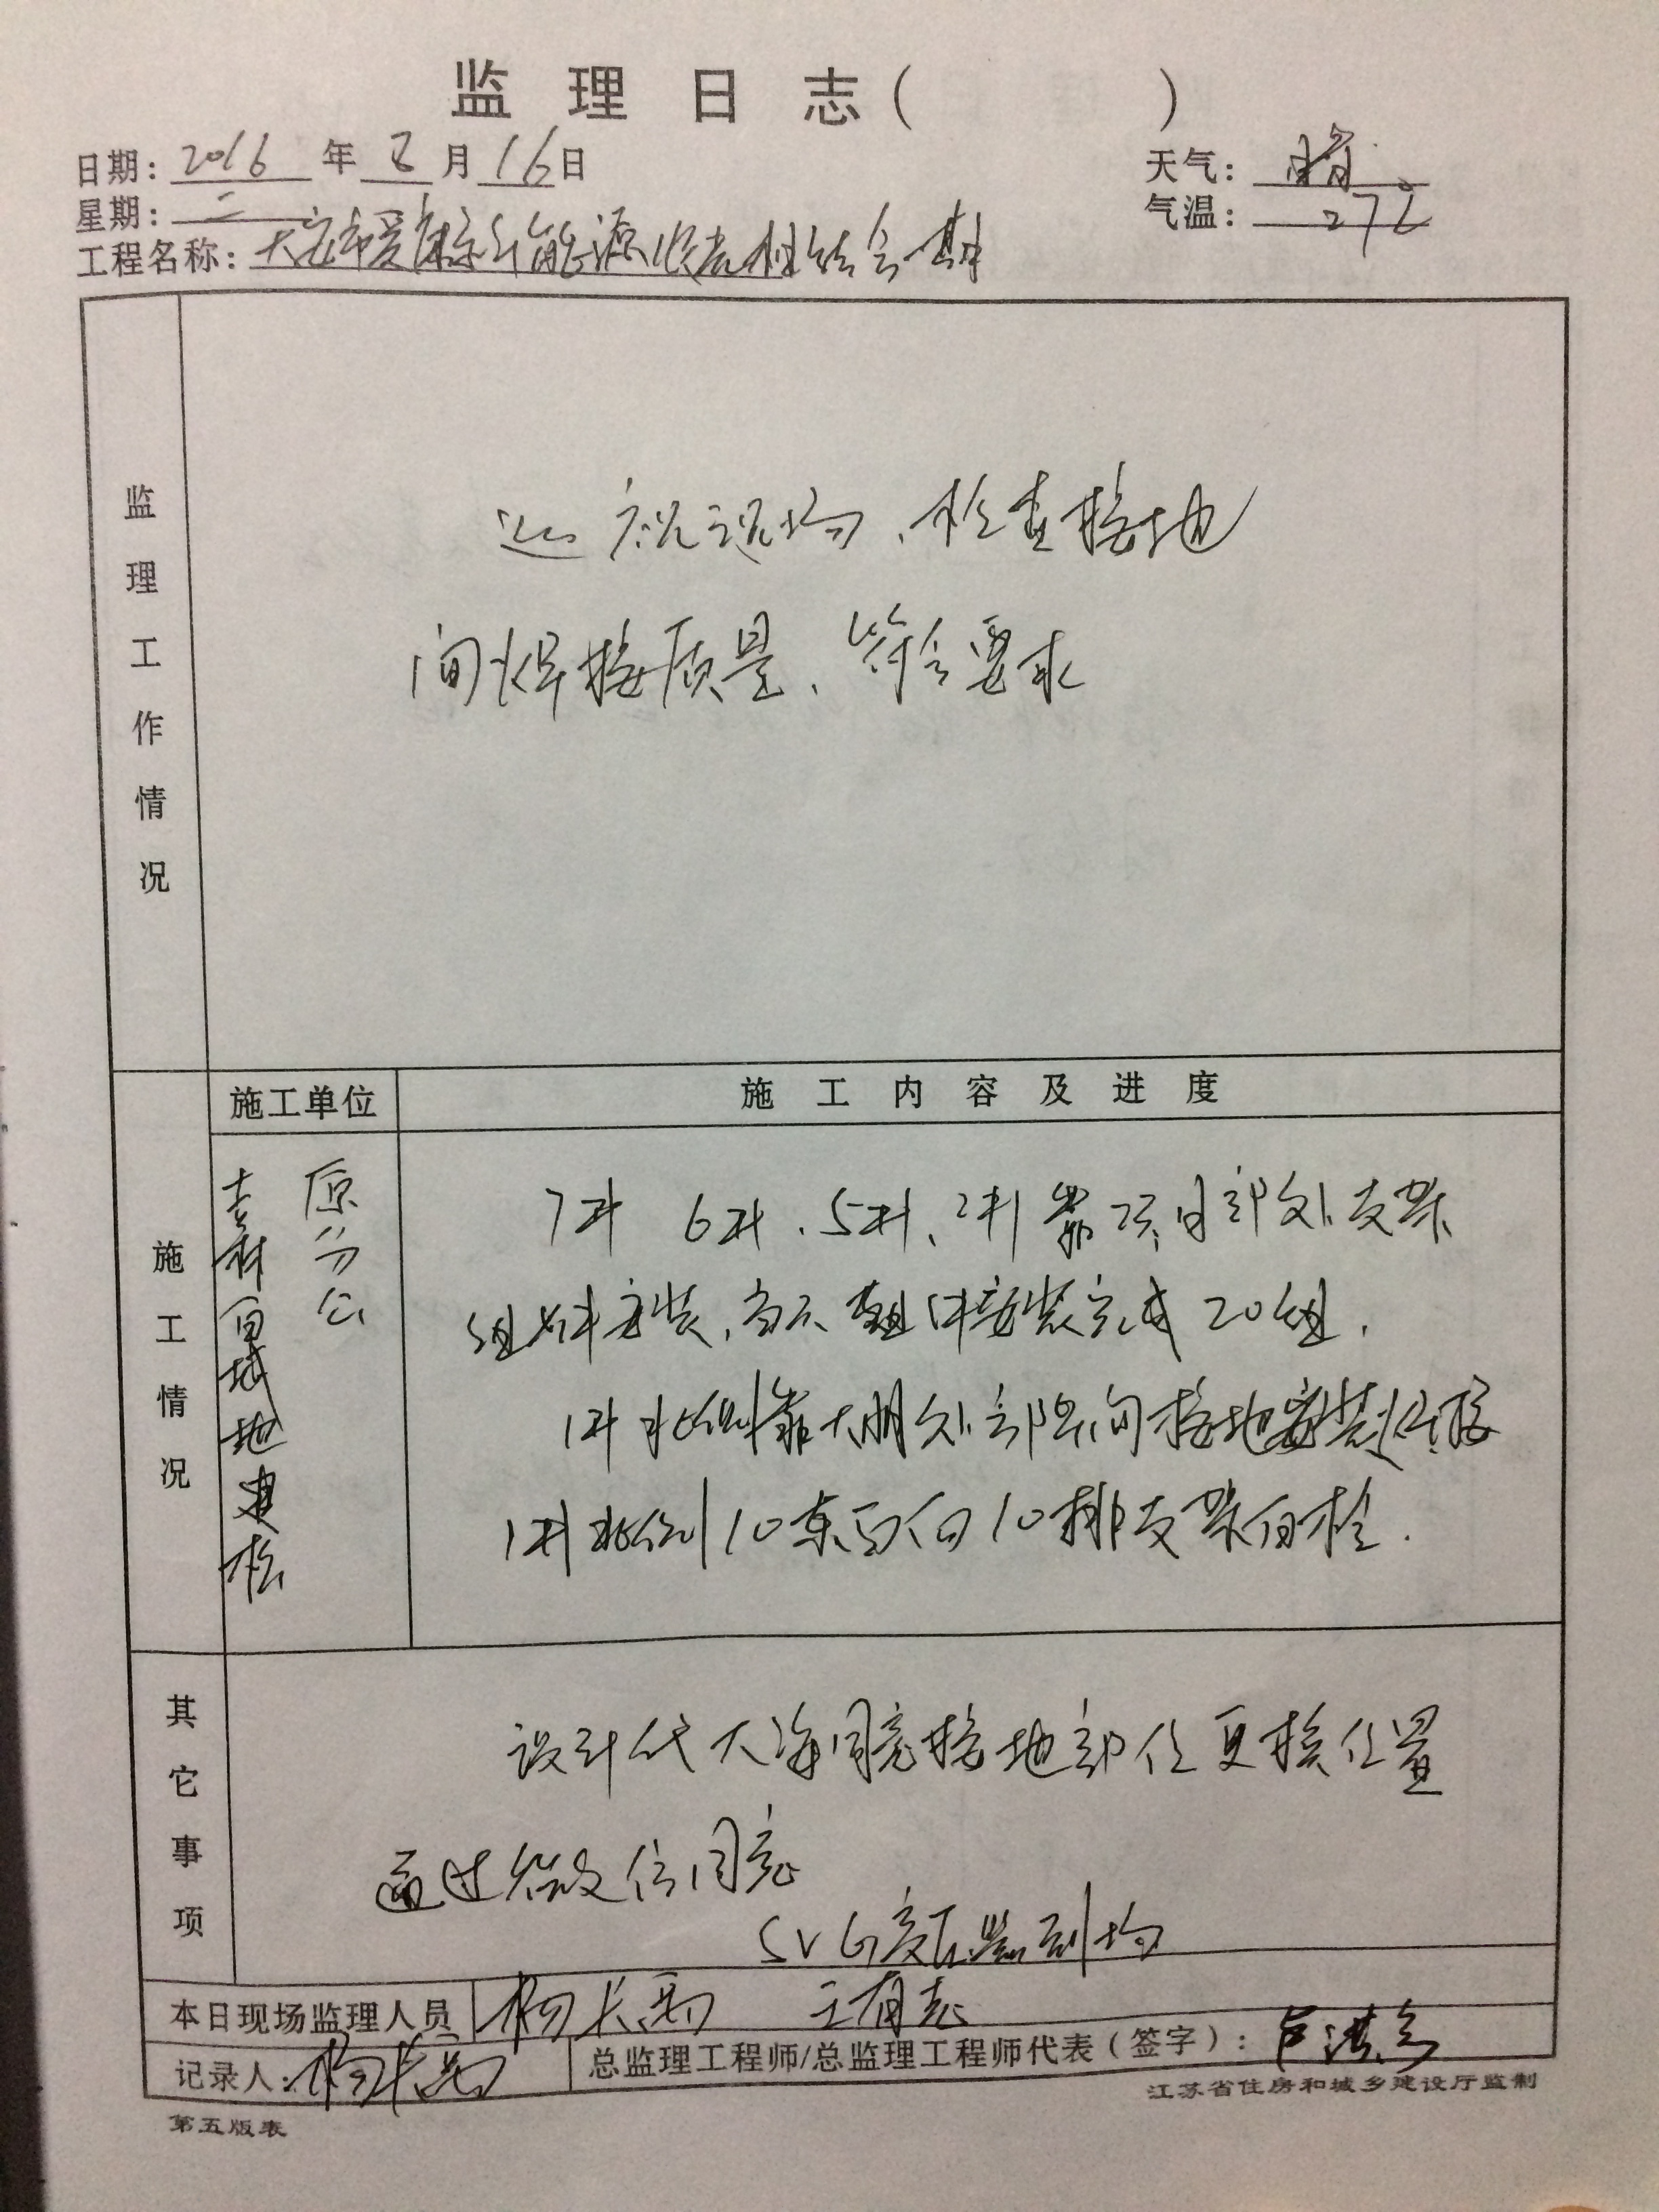 监理日志(　　　)
日期: 2016 年 8 月 16 日
天气: 晴
星期: 二
气温: 27℃
工程名称: 大安市爱康 能源 结合一期
监理工作情况
巡视现场、检查接地
间焊接质量、符合要求
施工单位
施工内容及进度
施工情况
7# 6#、5#、2# 靠项目部处支架
组件安装,当天组件安装完成20组.
1#北侧靠大棚处部队间接地安装焊接
1#北侧10东西向10排支架自检.
其它事项
设计代 同意接地部位更换位置
通过微信同意
SVG变压器到场
本日现场监理人员 杨长 王有志
记录人: 杨长
总监理工程师/总监理工程师代表(签字):
江苏省住房和城乡建设厅监制
第五版表